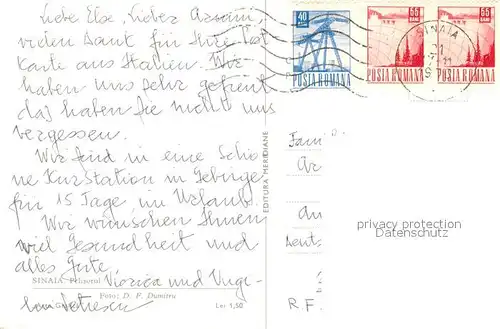 Liebe Else, Lieber
vielen Dank für Ihre
Karte aus Italien. Wir
haben uns sehr gefreut
daß haben Sie nicht uns
vergessen.
Wir sind in eine Schö
ne KurStation in Gebirge
für 15 Tage im Urlaub
Wir wünschen Ihnen
viel Gesundheit und
alles Gute
Viorica und
Petrescu
SINAIA. Peleșorul
Foto: D. F. Dumitru
Lei 1,50
EDITURA MERIDIANE
40 BANI
POSTA ROMANA
55 BANI
POSTA ROMANA
55 BANI
POSTA ROMANA
SINAIA
Fam
Ar
R F
privacy protection
Datenschutz